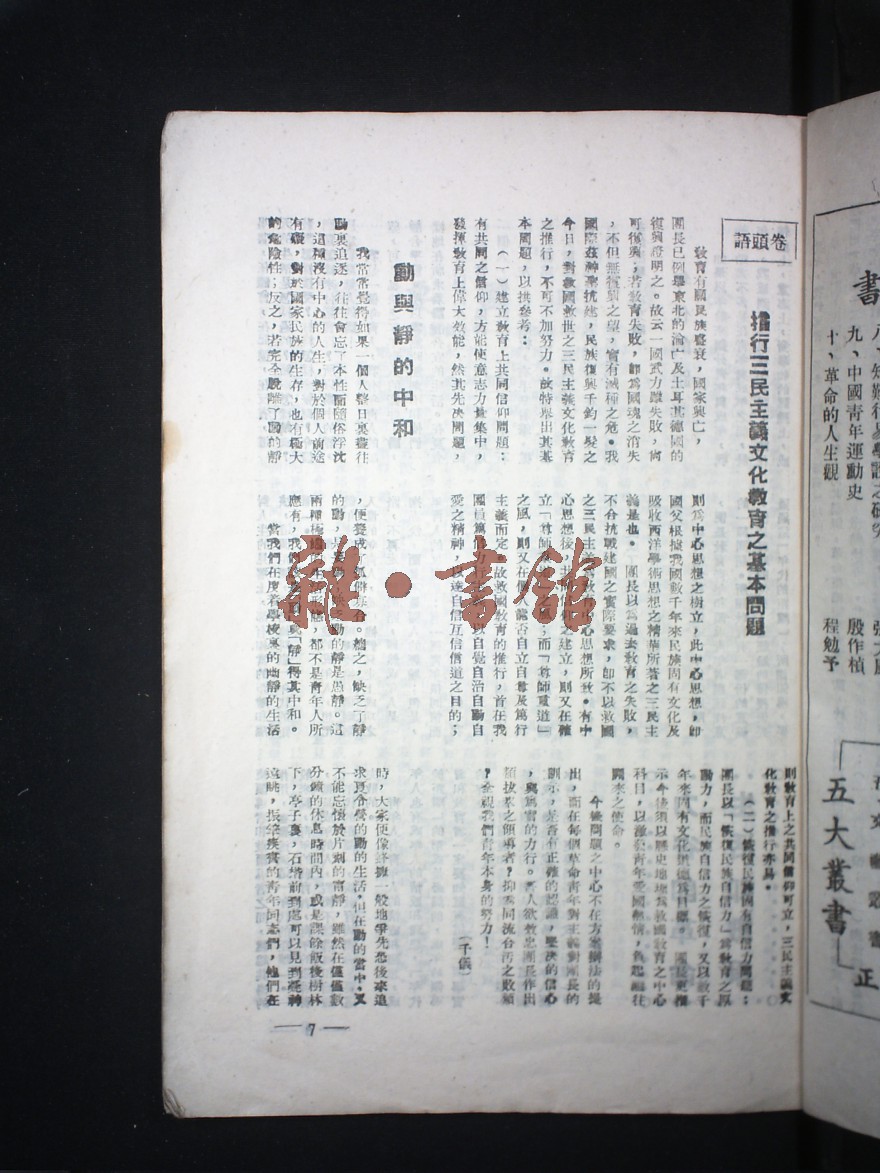 卷頭語
推行三民主義文化教育之基本問題
教育有關民族盛衰，國家興亡，
團長已例舉東北的淪亡及土耳其德國的
復興證明之。故云一國武力雖失敗，尚
可復興；若教育失敗，即為國魂之消失
，不但無復興之望，實有滅種之危。我
國際茲神聖抗建，民族復興千鈞一髮之
今日，對救國救世之三民主義文化教育
之推行，不可不加努力。故特舉出其基
本問題，以供參考：
（一）建立教育上共同信仰問題：
有共同之信仰，方能使意志力量集中，
發揮教育上偉大效能，然其先决問題，
則為中心思想之樹立，此中心思想，即
國父根據我國數千年來民族固有文化及
吸收西洋學術思想之精華所著之三民主
義是也。團長以為過去教育之失敗，
不合抗戰建國之實際要求，即不以救國
之三民主義為中心思想所致。有中
心思想後，共同信仰之建立，則又在確
立「尊師重道」之風；而「尊師重道」
之風，則又在人能否自立自尊及篤行
主義而定。故救國教育的推行，首在我
團員篤信力行主義，以自覺自治自動自
愛之精神，以達自信互信信道之目的；
則教育上之共同信仰可立，三民主義文
化教育之推行亦易。
（二）恢復民族固有自信力問題：
團長以「恢復民族自信力」為教育之原
動力，而民族自信力之恢復，又以數千
年來固有文化道德為目標。團長更指
示今後須以歷史地理為救國教育之中心
科目，以激發青年愛國熱情，負起繼往
開來之使命。
今後問題之中心不在方案辦法的提
出，而在每個革命青年對主義對團長的
訓示，是否有正確的認識，堅决的信心
，與篤實的力行。吾人欲效忠團長作出
類拔萃之領導者？抑為同流合污之敗類
？全視我們青年本身的努力！
（千儀）
動與靜的中和
我常常覺得如果一個人整日裏儘往
動裏追逐，往往會忘了本性而隨俗浮沈
，這種沒有中心的人生，對於個人前途
有礙，對於國家民族的生存，也有極大
的危險性；反之，若完全脫離了動的靜
，便養成了孤僻
的動，缺乏動的靜是愚靜。這
兩種極端的生活形態，都不是青年人所
應有，我們必須「動」與「靜」得其中和。
當我們在度着學校裏的幽靜的生活
時，大家便像蜂擁一般地爭先恐後來追
求夏令營的動的生活。但在動的當中，又
不能忘懷於片刻的甯靜，雖然在僅僅數
分鐘的休息時間內，或是課餘飯後樹林
下，亭子裏，石堦前到處可以見到凝神
遠眺，振筆疾書的青年同志們，他們在
— 7 —
書
八、知難行易學說之研究
九、中國青年運動史
殷作楨
十、革命的人生觀
程勉予
五大叢書
正
雜·書館